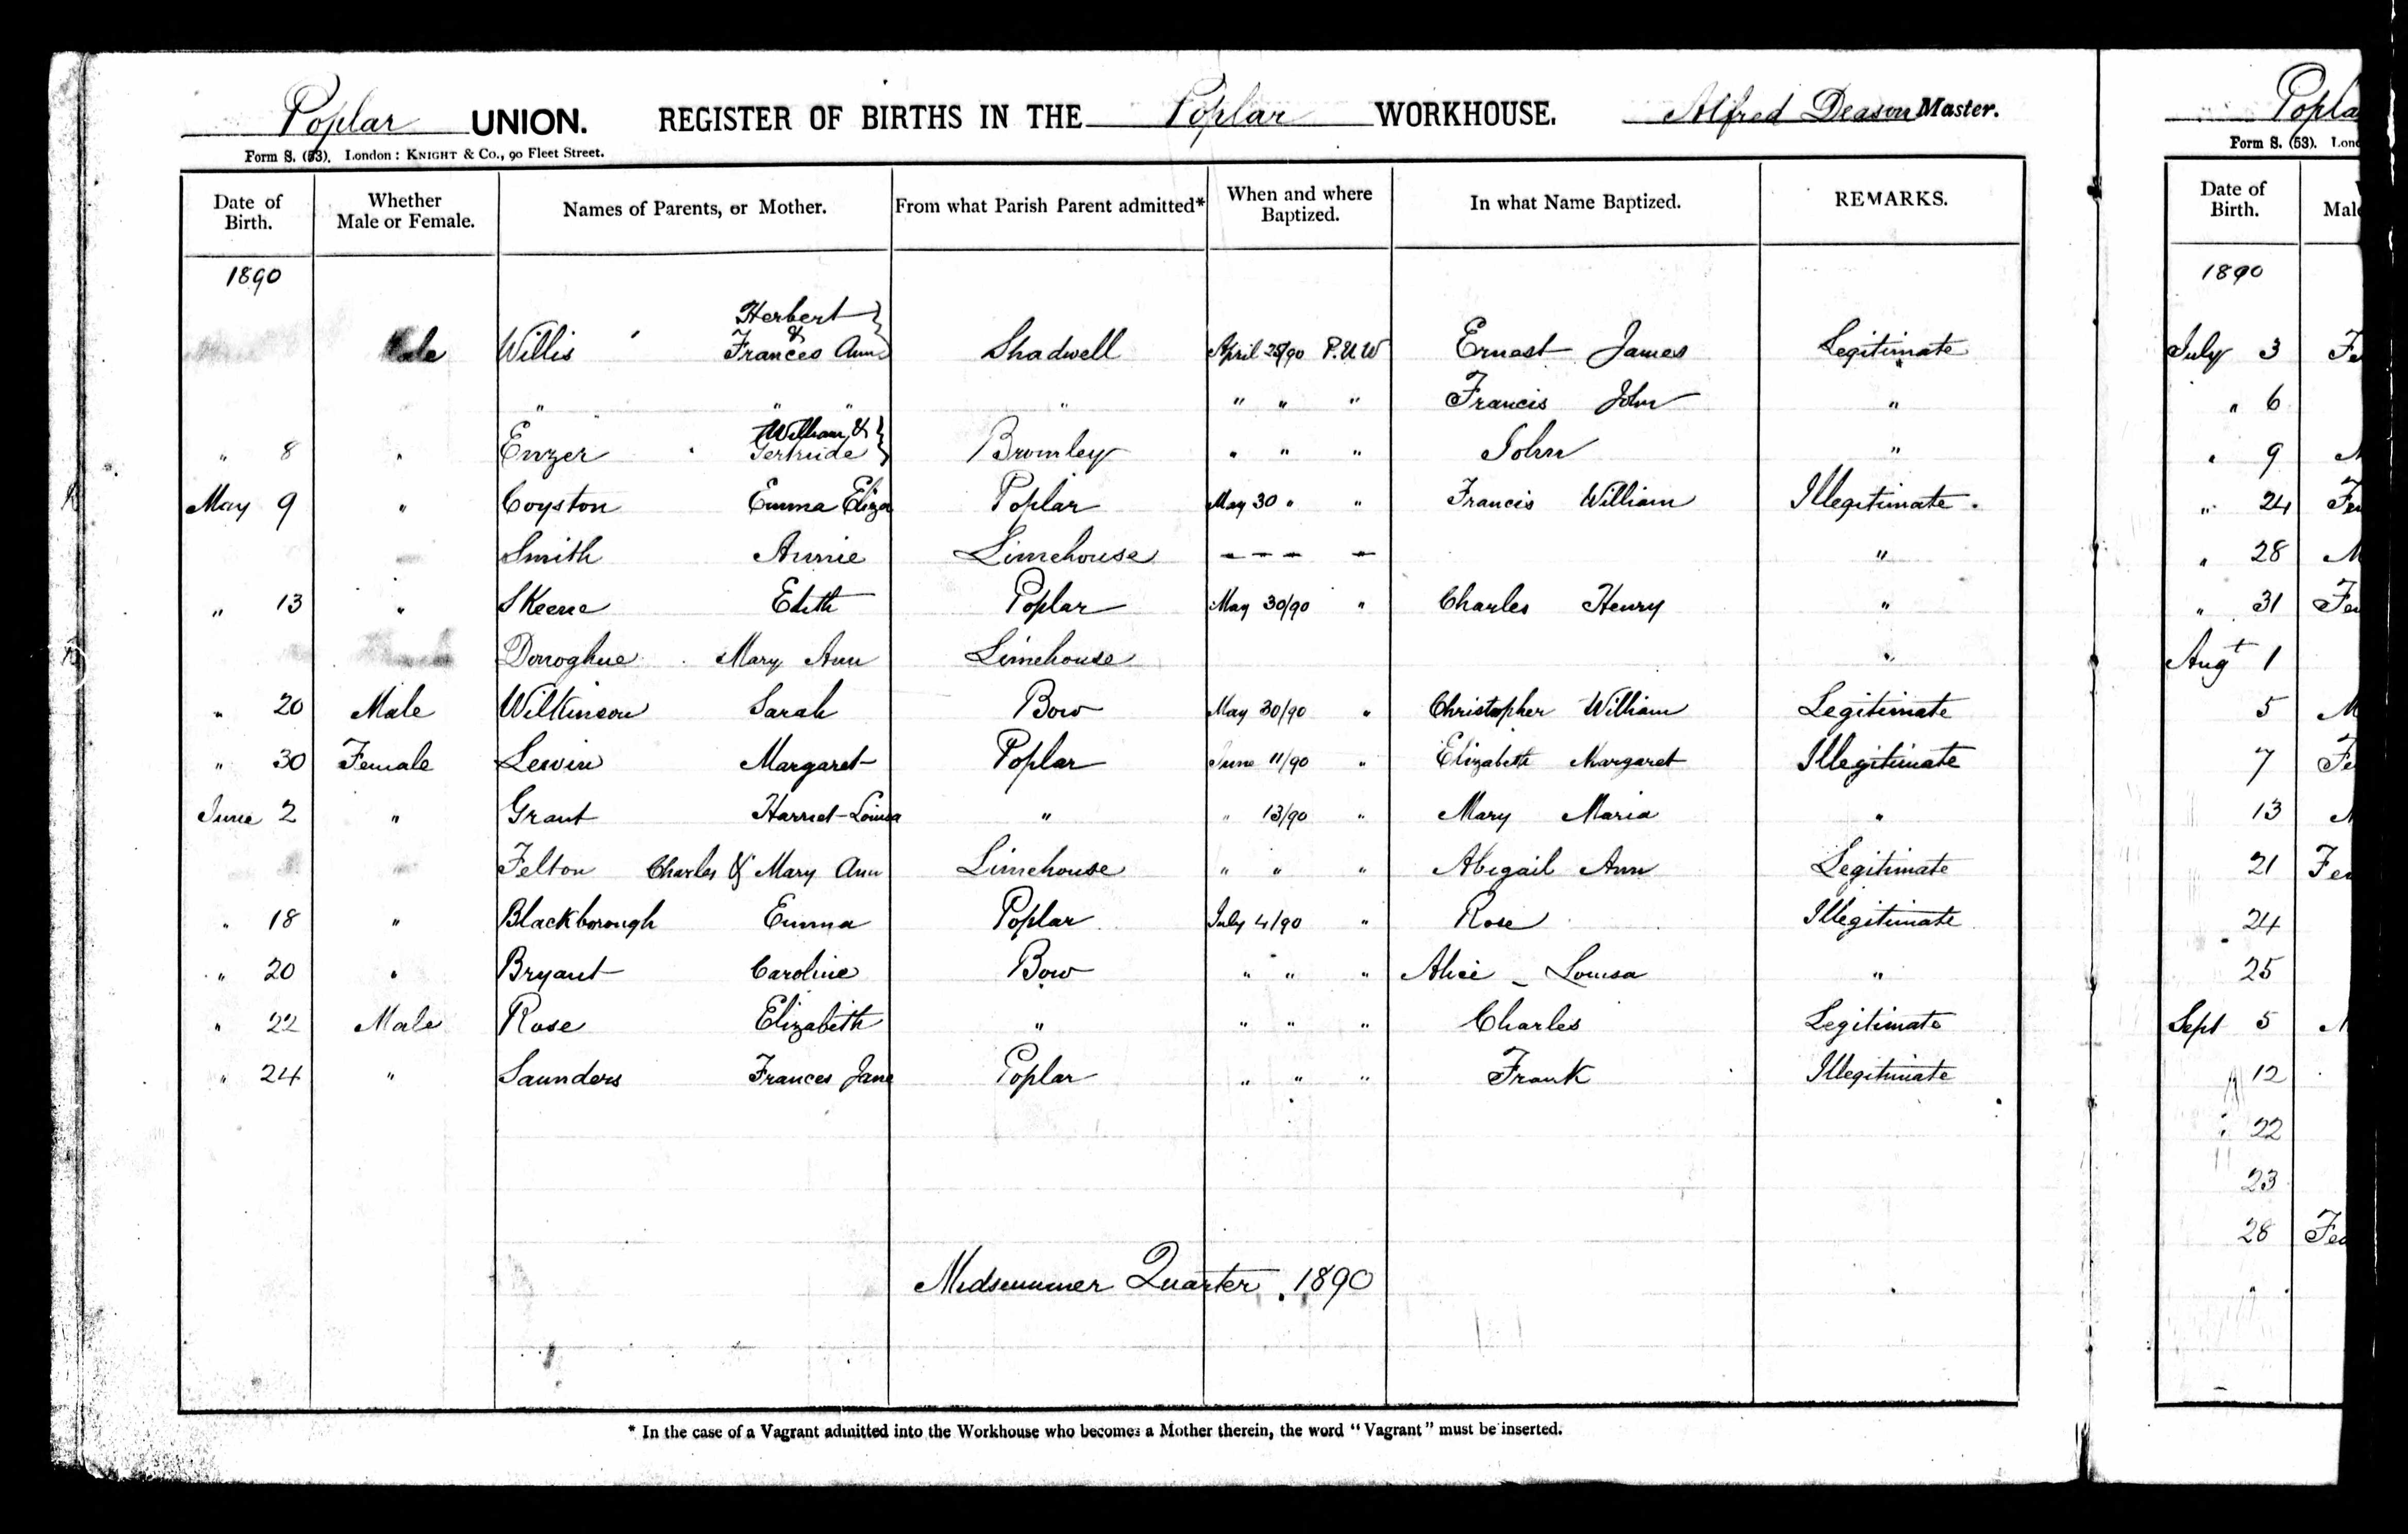 Poplar UNION. REGISTER OF BIRTHS IN THE Poplar WORKHOUSE. Alfred Deason Master.
Form S. (53). London: KNIGHT & Co., 90 Fleet Street.
Date of Birth. Whether Male or Female. Names of Parents, or Mother. From what Parish Parent admitted* When and where Baptized. In what Name Baptized. REMARKS.
1890
Male Willis Herbert & Frances Ann } Shadwell April 25/90 P.U.W Ernest James Legitimate
" " " " " " " Francis John "
" 8 " Enzer William & Gertrude } Bromley " " " John "
May 9 " Coyston Emma Eliza Poplar May 30 " " Francis William Illegitimate
Smith Annie Limehouse - - - - "
" 13 " Skeene Edith Poplar May 30/90 " Charles Henry "
Donoghue Mary Ann Limehouse "
" 20 Male Wilkinson Sarah Bow May 30/90 " Christopher William Legitimate
" 30 Female Lewin Margaret Poplar June 11/90 " Elizabeth Margaret Illegitimate
June 2 " Grant Harriet-Louisa " " 13/90 " Mary Maria "
Felton Charles & Mary Ann Limehouse " " " Abigail Ann Legitimate
" 18 " Blackborough Emma Poplar July 4/90 " Rose Illegitimate
" 20 " Bryant Caroline Bow " " " Alice - Louisa "
" 22 Male Rose Elizabeth " " " " Charles Legitimate
" 24 " Saunders Frances Jane Poplar " " " Frank Illegitimate
Midsummer Quarter. 1890
* In the case of a Vagrant admitted into the Workhouse who becomes a Mother therein, the word "Vagrant" must be inserted.
Popla
Form S. (53). Lon
Date of Birth. Mal
1890
July 3 Fe
" 6
" 9 M
" 24 Fe
" 28 M
" 31 Fe
Augt 1
5 M
7 Fe
13 M
21 Fe
24
25
Sept 5 M
12
" 22
23
28 Fe